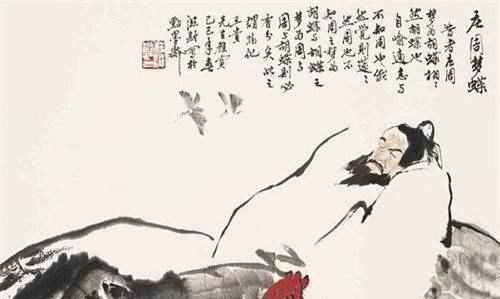 庄周梦蝶
昔者庄周
梦为胡蝶栩栩
然胡蝶也
自喻适志与
不知周也俄
然觉则蘧蘧
然周也不
知周之梦为
胡蝶与胡蝶之
梦为周与
周与胡蝶则必
有分矣此之
谓物化
先生雅赏
己巳年春